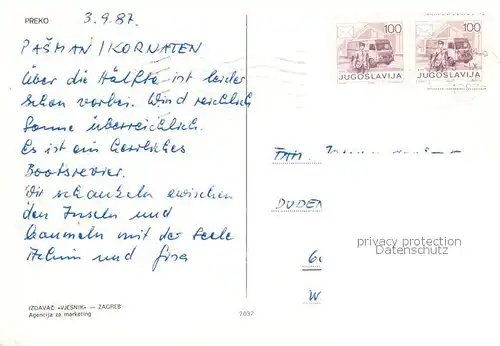 PREKO
3.9.87.
PAŠMAN / KORNATEN
über die Hälfte ist leider
schon vorbei. Wind reichlich
Sonne überreichlich.
Es ist ein herrliches
Bootsrevier.
Wir schaukeln zwischen
den Inseln und
baumeln mit der Seele
Achim und
100
JUGOSLAVIJA
100
JUGOSLAVIJA
FAM.
DUDEN
privacy protection
Datenschutz
W
IZDAVAČ «VJESNIK» — ZAGREB
Agencija za marketing
7037